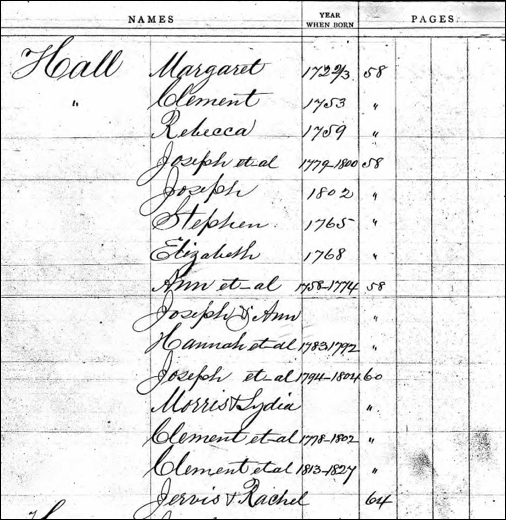 NAMES YEAR WHEN BORN PAGES.
Hall Margaret 1722/3 58
" Clement 1753 "
Rebecca 1759 "
Joseph et-al 1779-1800 58
Joseph 1802 "
Stephen. 1765 "
Elizabeth 1768 "
Ann et-al 1758-1774 58
Joseph & Ann "
Hannah et al 1783-1792 "
Joseph et-al 1794-1804 60
Morris & Lydia "
Clement et-al 1778-1802 "
Clement et al 1813-1827 "
Jervis & Rachel 64